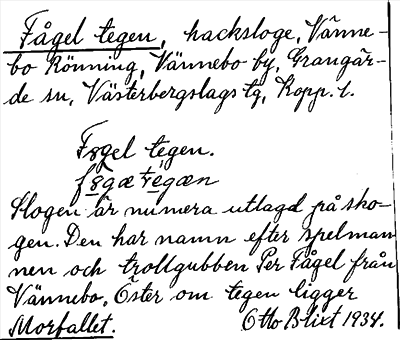 Fågel tegen, hacksloge, Vänne-
bo Rönning, Vännebo by, Grangär-
de sn, Västerbergslags tg, Kopp. l.
Fogel tegen.
Slogen är numera utlagd på sko-
gen. Den har namn efter spelman
nen och trollgubben Per Fågel från
Vännebo. Öster om tegen ligger
Morfallet. Otto Blixt 1934.